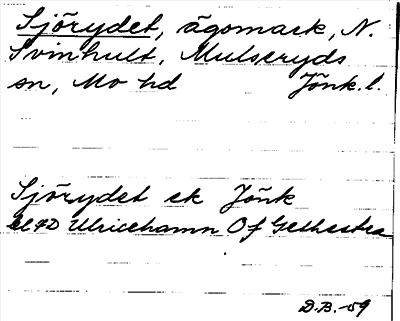 Sjörydet, ägomark, N.
Svinhult, Mulseryds
sn, Mo hd Jönk. l.
Sjörydet ek Jönk
bl 4D Ulricehamn Of
D.B. -59